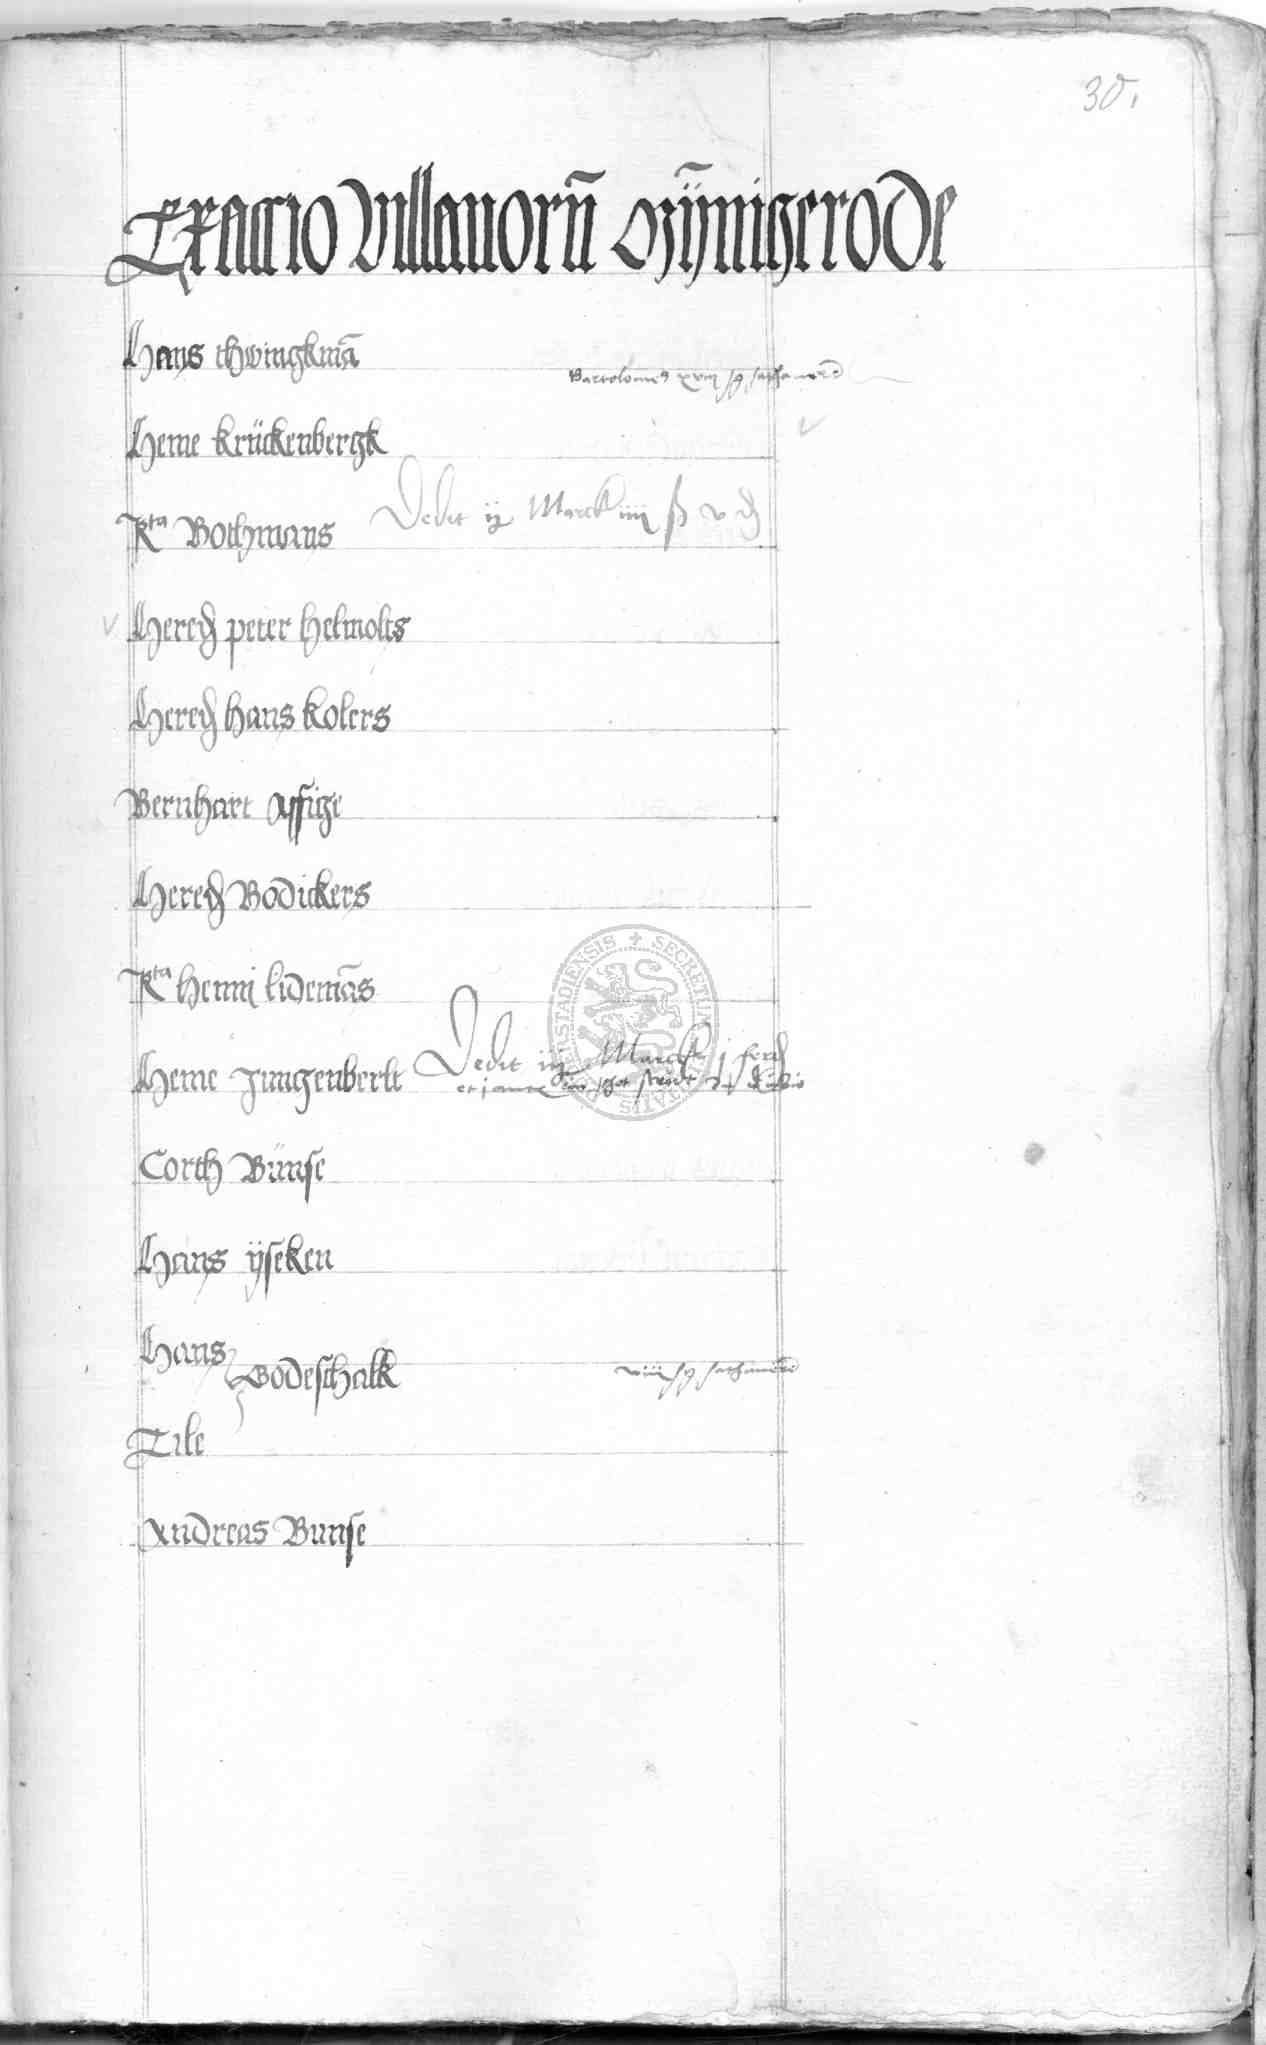 30.
Exactio villanorū Mȳnigerode
Hans thwingkmā
Heine krückenbergk
Rta Bothmans Dedit ij Marck iiij ß v ₰
Hered peter helmolts
Hered hans kolers
Bernhart
Hered Bodickers
Rta henni lidemās
Heine Jungenberlt Dedit iij Marck j ferd
Corth Bünse
Hans ÿseken
Hans
Godeschalk
Tile
Andreas Bunse
SECRETUM